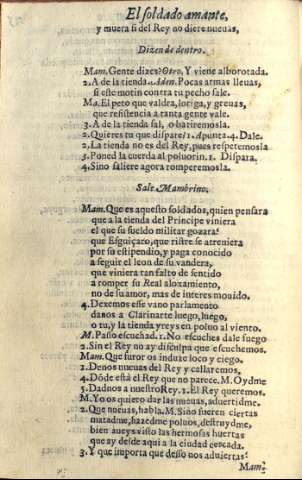 El soldado amante,
y muera si del Rey no diere nueuas,
Dizen de dentro.
Mam. Gente dizes? Otro, Y viene alborotada.
2. A de la tienda. Adem. Pocas armas lleuas,
si este motin contra tu pecho sale.
Ma. El peto que valdra, loriga, y greuas,
que resistencia a tanta gente vale.
3. A de la tienda sal, o batiremosla.
2. Quieres tu que dispare? 1. Apunta. 4. Dale.
2. La tienda no es del Rey, pues respetemosla
3. Poned la cuerda al poluorin. 1. Dispara.
4. Sino saliere agora romperemosla.
Sale Mambrino.
Mam. Que es aquesto soldados, quien pensara
que a la tienda del Principe viniera
el que su sueldo militar gozara?
que Esguiçaro, que ristre se atreuiera
por su estipendio, y paga conocido
a seguir el leon de su vandera,
que viniera tan falto de sentido
a romper su Real aloxamiento,
no de su amor, mas de interes mouido.
4. Dexemos esse vano parlamento
danos a Clarinarte luego, luego,
o tu, y la tienda yreys en poluo al viento.
M. Passo escuchad. 1. No escuches dale fuego
2. Sin el Rey no ay disculpa que escuchemos.
Mam. Que furor os induze loco y ciego.
1. Denos nueuas del Rey y callaremos.
4. Dõde està el Rey que no parece. M. Oydme
5. Dadnos a nuestro Rey. 1. El Rey queremos.
M. Yo os quiero dar las nueuas, aduertidme.
2. Que nueuas, habla. M. Sino fueren ciertas
matadme, hazedme poluos, destruydme,
bien aueys visto las hermosas huertas
que ay desde aqui a la ciudad cercada.
3. Y que importa que desso nos aduiertas?
Mam.